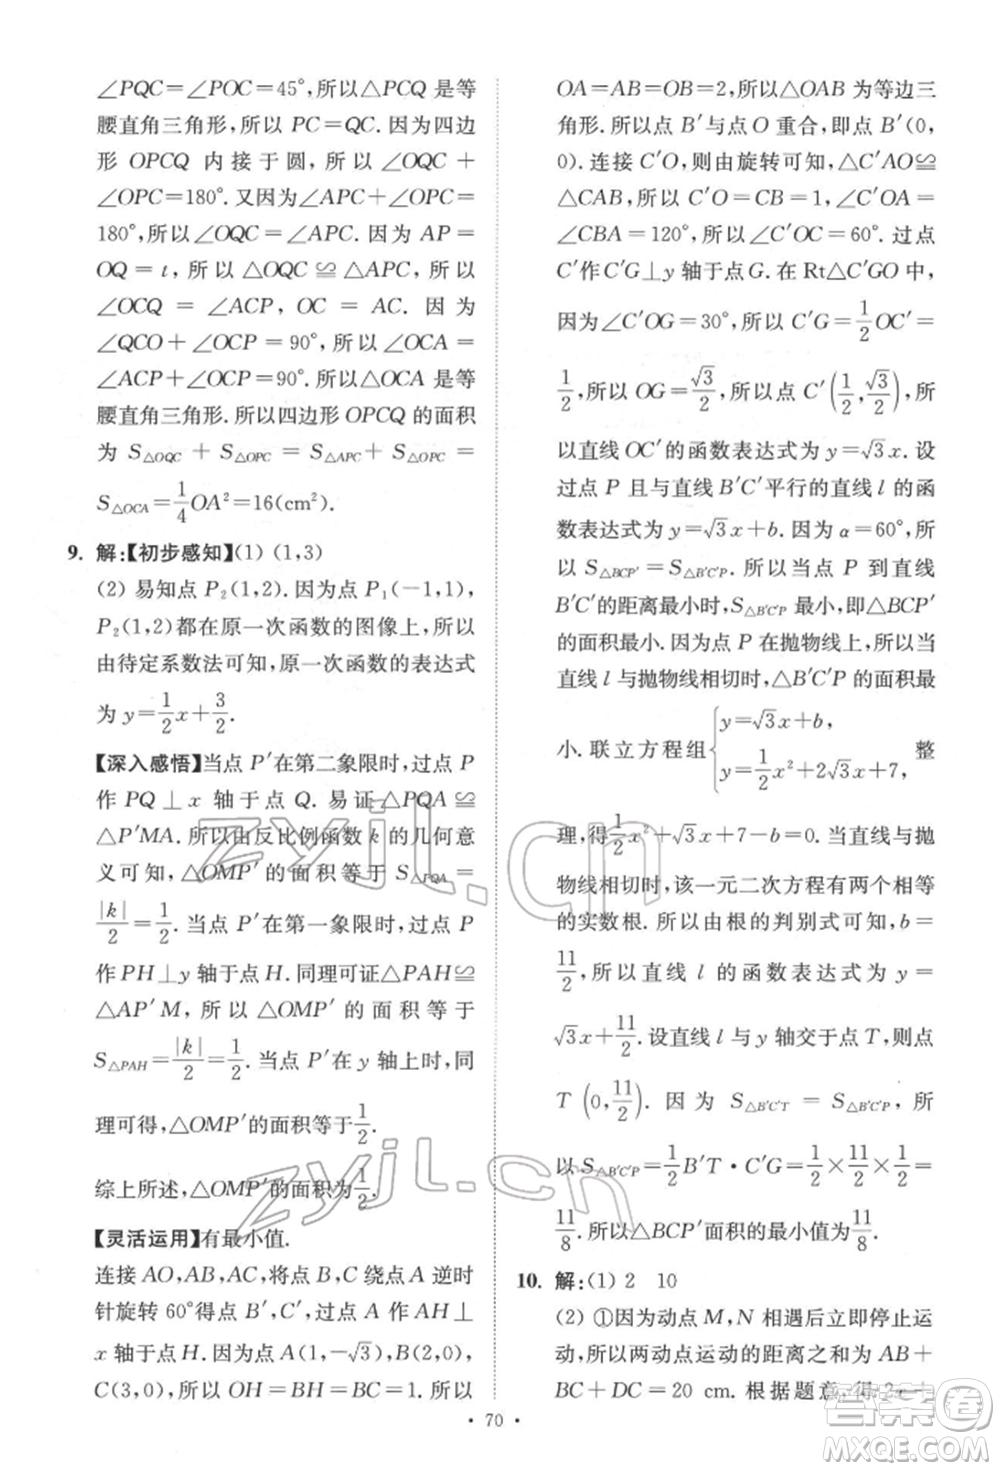 ∠PQC=∠POC=45°,所以△PCQ是等
腰直角三角形,所以 PC=QC. 因为四边
形 OPCQ 内接于圆, 所以 ∠OQC +
∠OPC=180°. 又因为 ∠APC+∠OPC=
180°, 所以 ∠OQC=∠APC. 因为 AP=
OQ = t, 所以 △OQC ≌ △APC. 所以
∠OCQ = ∠ACP, OC = AC. 因为
∠QCO + ∠OCP = 90°, 所以 ∠OCA =
∠ACP+∠OCP=90°. 所以△OCA是等
腰直角三角形. 所以四边形 OPCQ 的面积
为 S△OQC + S△OPC = S△APC + S△OPC =
S△OCA=1/4 OA²=16(cm²).
9. 解:【初步感知】(1) (1,3)
(2) 易知点 P₂(1,2). 因为点 P₁(-1,1),
P₂(1,2)都在原一次函数的图像上,所以
由待定系数法可知,原一次函数的表达式
为 y=1/2 x+3/2.
【深入感悟】当点 P′在第二象限时,过点 P
作 PQ⊥x 轴于点 Q. 易证△PQA≌
△P′MA. 所以由反比例函数 k 的几何意
义可知, △OMP′ 的面积等于 S△PQA =
|k|/2=1/2. 当点 P′在第一象限时,过点 P
作 PH⊥y 轴于点 H. 同理可证△PAH≌
△AP′M, 所以 △OMP′ 的面积等于
S△PAH=|k|/2=1/2. 当点 P′在 y 轴上时,同
理可得,△OMP′的面积等于1/2.
综上所述,△OMP′的面积为1/2.
【灵活运用】有最小值.
连接 AO,AB,AC,将点 B,C 绕点 A 逆时
针旋转 60°得点 B′,C′,过点 A 作 AH⊥
x 轴于点 H. 因为点 A(1,-√3),B(2,0),
C(3,0),所以 OH=BH=BC=1. 所以
OA=AB=OB=2,所以△OAB为等边三
角形. 所以点 B′与点 O 重合,即点 B′(0,
0). 连接 C′O,则由旋转可知,△C′AO≌
△CAB,所以 C′O=CB=1,∠C′OA=
∠CBA=120°,所以∠C′OC=60°. 过点
C′作 C′G⊥y 轴于点 G. 在 Rt△C′GO 中,
因为∠C′OG=30°,所以 C′G=1/2 OC′=
1/2,所以 OG=√3/2,所以点 C′(1/2,√3/2),所
以直线 OC′的函数表达式为 y=√3x. 设
过点 P 且与直线 B′C′平行的直线 l 的函
数表达式为 y=√3x+b. 因为 α=60°,所
以 S△BCP′ = S△B′C′P. 所以当点 P 到直线
B′C′的距离最小时,S△B′C′P最小,即△BCP′
的面积最小. 因为点 P 在抛物线上,所以当
直线 l 与抛物线相切时,△B′C′P 的面积最
小. 联立方程组{y=√3x+b, y=1/2 x²+2√3x+7, 整
理,得1/2 x²+√3x+7-b=0. 当直线与抛
物线相切时,该一元二次方程有两个相等
的实数根. 所以由根的判别式可知,b=
11/2,所以直线 l 的函数表达式为 y=
√3x+11/2. 设直线 l 与 y 轴交于点 T,则点
T (0,11/2). 因为 S△B′C′T = S△B′C′P, 所
以 S△B′C′P=1/2 B′T·C′G=1/2×11/2×1/2=
11/8. 所以△BCP′面积的最小值为11/8.
10. 解:(1) 2 10
(2) ①因为动点 M,N 相遇后立即停止运
动,所以两动点运动的路程之和为 AB+
BC+DC=20 cm. 根据题意,得 2x+
· 70 ·
zyjl.cn
zyjl.cn
答案圈
MXQE.COM